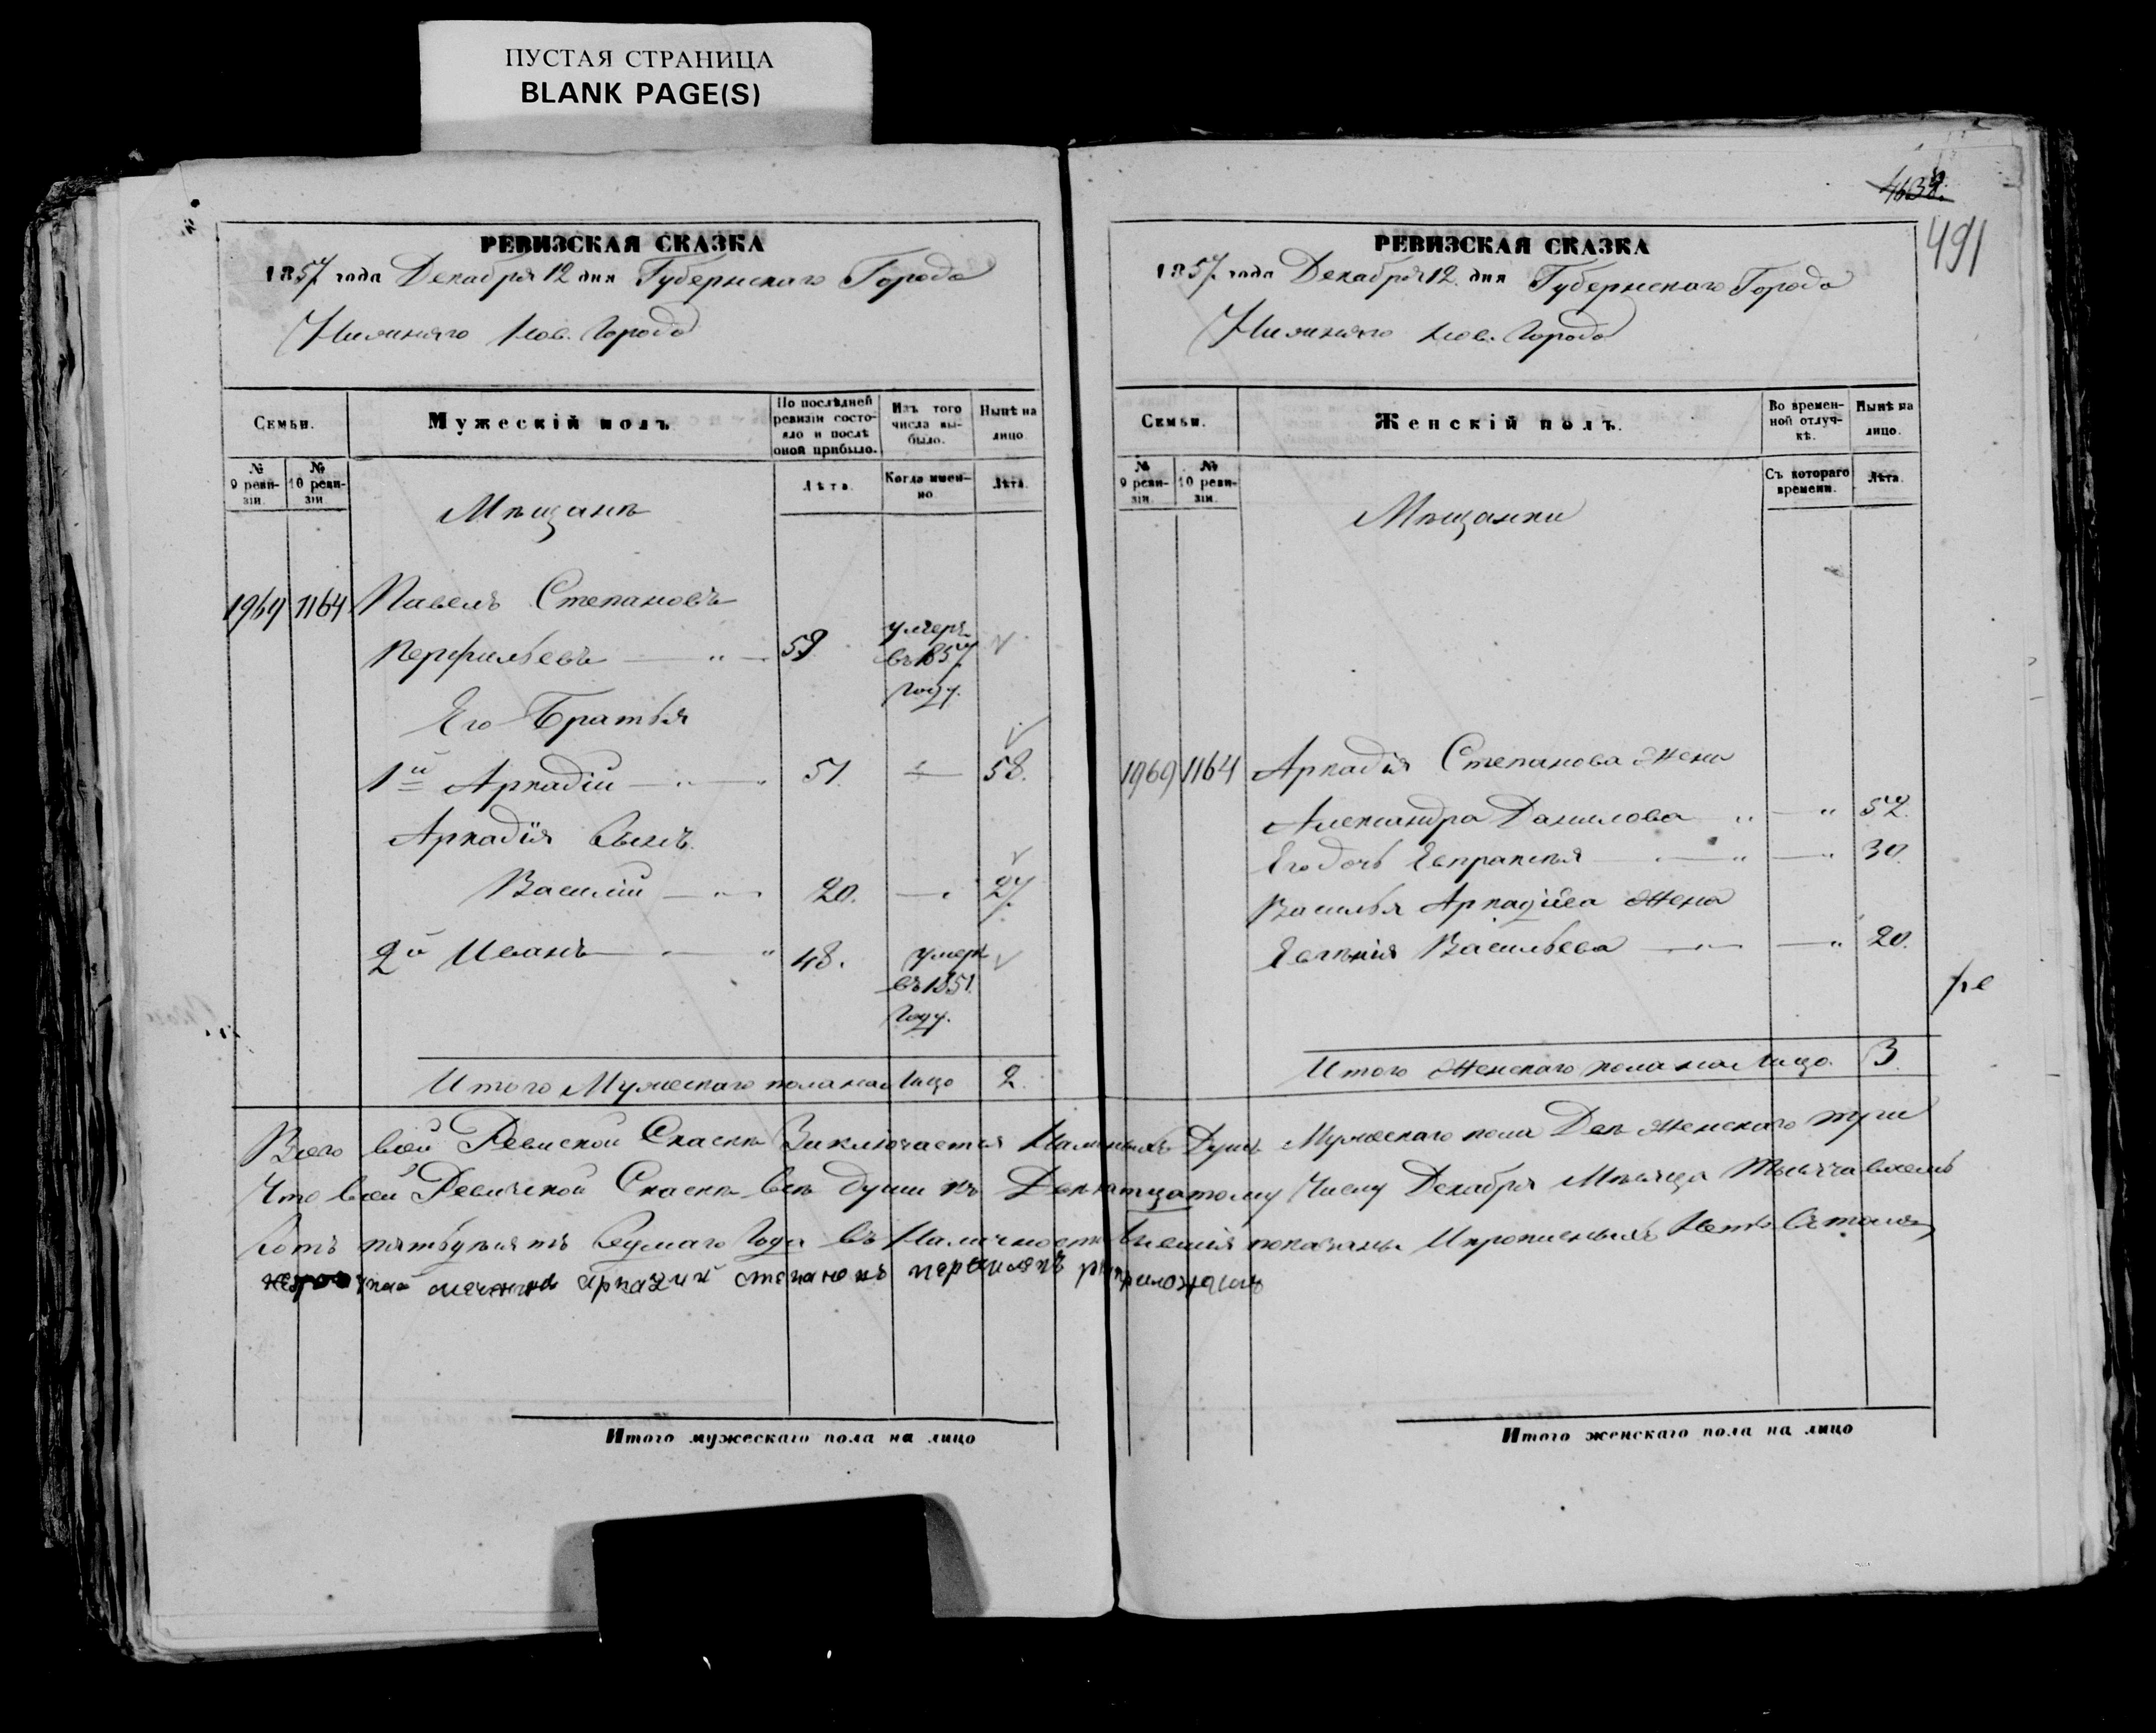 ПУСТАЯ СТРАНИЦА
BLANK PAGE(S)
РЕВИЗСКАЯ СКАЗКА
1857 года Декабря 12 дня Губернскаго Города
Нижняго Нов. Города
Семьи.
Мужескій полъ.
По послѣдней ревизіи состояло и послѣ оной прибыло.
Изъ того числа выбыло.
Нынѣ на лицо.
№ 9 ревизіи.
№ 10 ревизіи.
Лѣта.
Когда именно.
Лѣта.
Мѣщанъ
1969 1164 Павелъ Степановъ
Перфильевъ 59. умеръ
въ 1857
году.
Его Братья
1й Аркадій 51. 58.
Аркадія Сынъ.
Василій 20. 27.
2й Иванъ 48. умеръ
въ 1851.
году.
Итого Мужескаго пола на Лицо 2.
4638.
491
РЕВИЗСКАЯ СКАЗКА
1857 года Декабря 12. дня Губернскаго Города
Нижняго Нов. Города
Семьи.
Женскій полъ.
Во временной отлучкѣ.
Нынѣ на лицо.
№ 9 ревизіи.
№ 10 ревизіи.
Съ котораго времени.
Лѣта.
Мѣщанки
1969 1164 Аркадія Степанова Жена
Александра Данилова 52.
Его дочь Евпраксія 30.
Василья Аркадіева Жена
Василѣева 20.
Итого Женскаго пола на Лицо. 3.
Всего всей Ревиской Скаски Заключается Наличныхъ Душъ Мужескаго пола Две Женскаго три
Что всей Ревиской Скаски все души къ Декабря Мѣсяца Тысяча восемь
Сотъ пятьдесятъ Седмаго Года въ Наличности показаны И прописныхъ Нетъ
аркадий степановъ приложилъ
Итого мужескаго пола на лицо
Итого женскаго пола на лицо